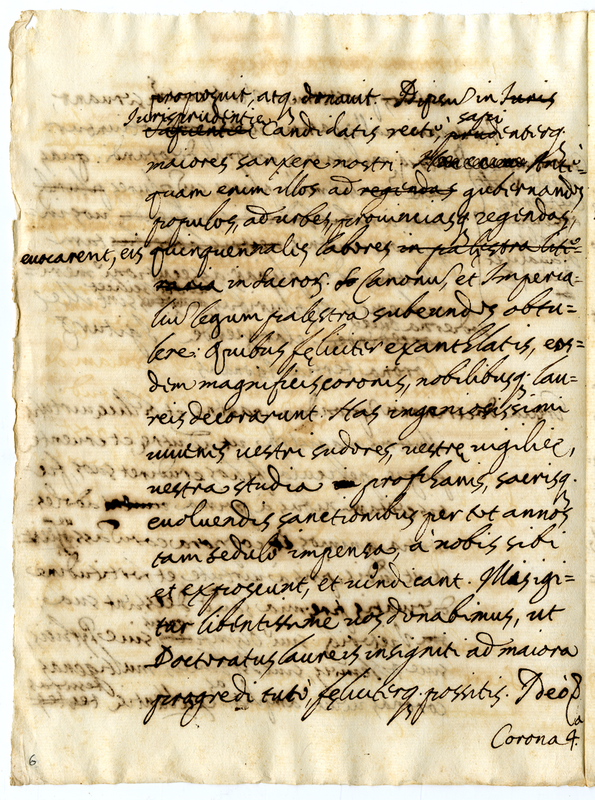 proposuit, atq. donauit. Ipsu in Iuris
Iurisprudentie sapi
sapientiei Candidatis recte, prudenterq.
maiores sanxere nostri. Anti=
quam enim illos ad regendas gubernandos
populos, ad urbes, prouincias q. regendas,
euocarent, eis quinquennalis labores in palestra lite=
raria in sacror. Canonu, et Imperia=
liu legum palestra subeundos obtu=
lere: Quibus feliciter exantlatis, eos=
dem magnificis coronis, nobilibusq. lau=
reis decorarunt. Has ingeniosissimi
iuuenis uestri sudores, uestrę uigilię,
uestra studia in prophanis, sacrisq.
euoluendis sanctionibus per tot annos
tam sedulò impensa, à nobis sibi
et exposcunt, et uindicant. His igi=
tur libentissimè uos donabimus, ut
Doctoratus laureis insigniti ad maiora
progredi tutò, feliciterq. possitis. Ideò
Corona 4.a
6